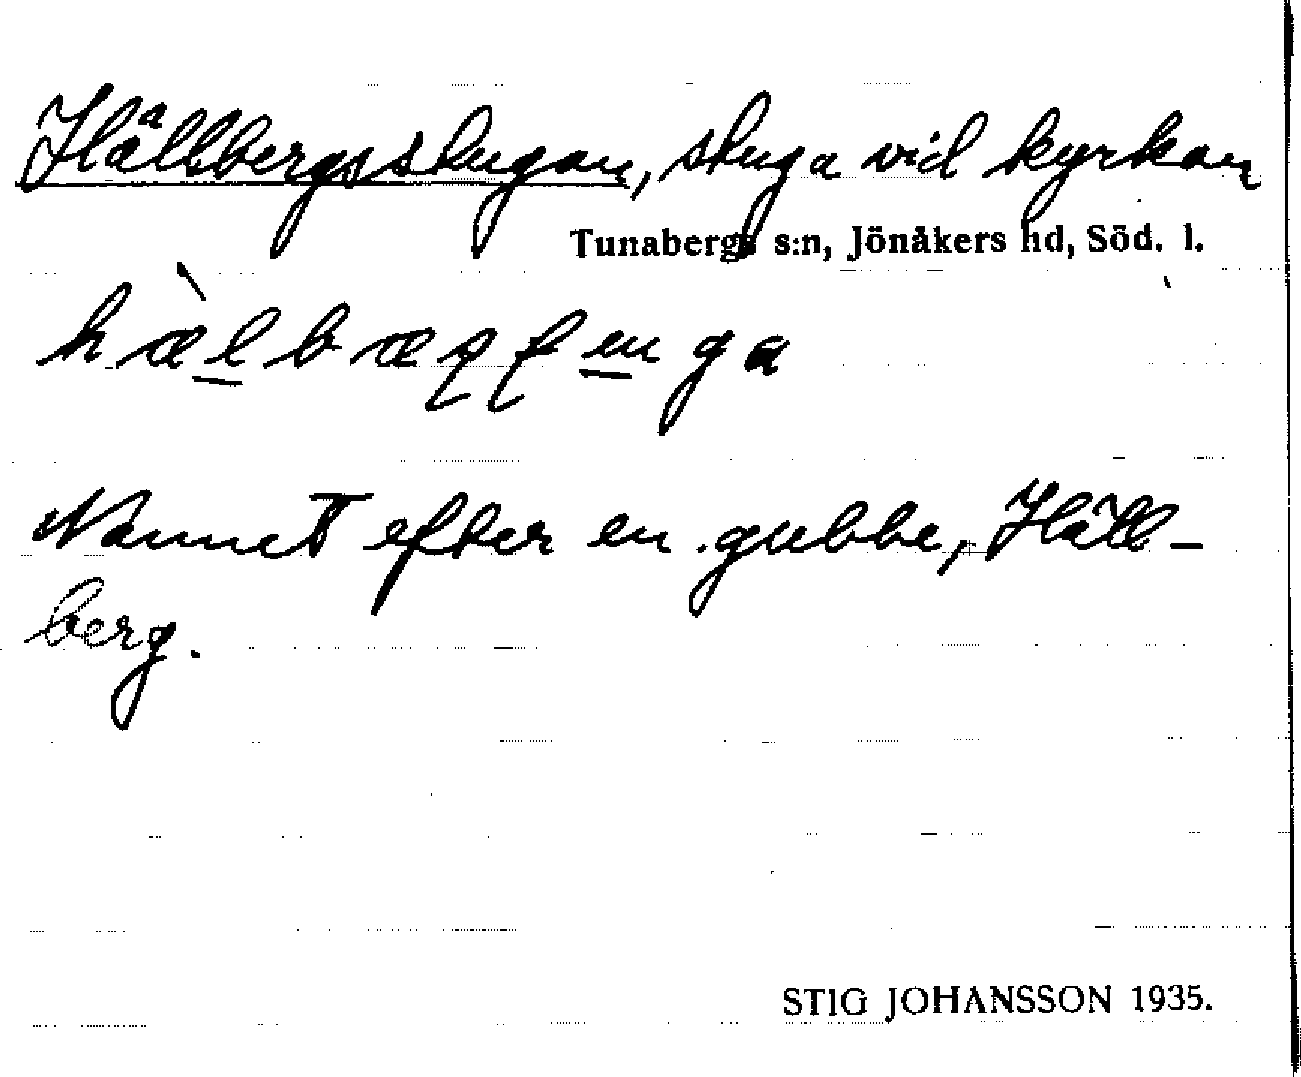 Hällbergsstugan, stuga vid kyrkan
Tunabergs s:n, Jönåkers hd, Söd. l.
Namnet efter en gubbe, Häll-
berg.
STIG JOHANSSON 1935.